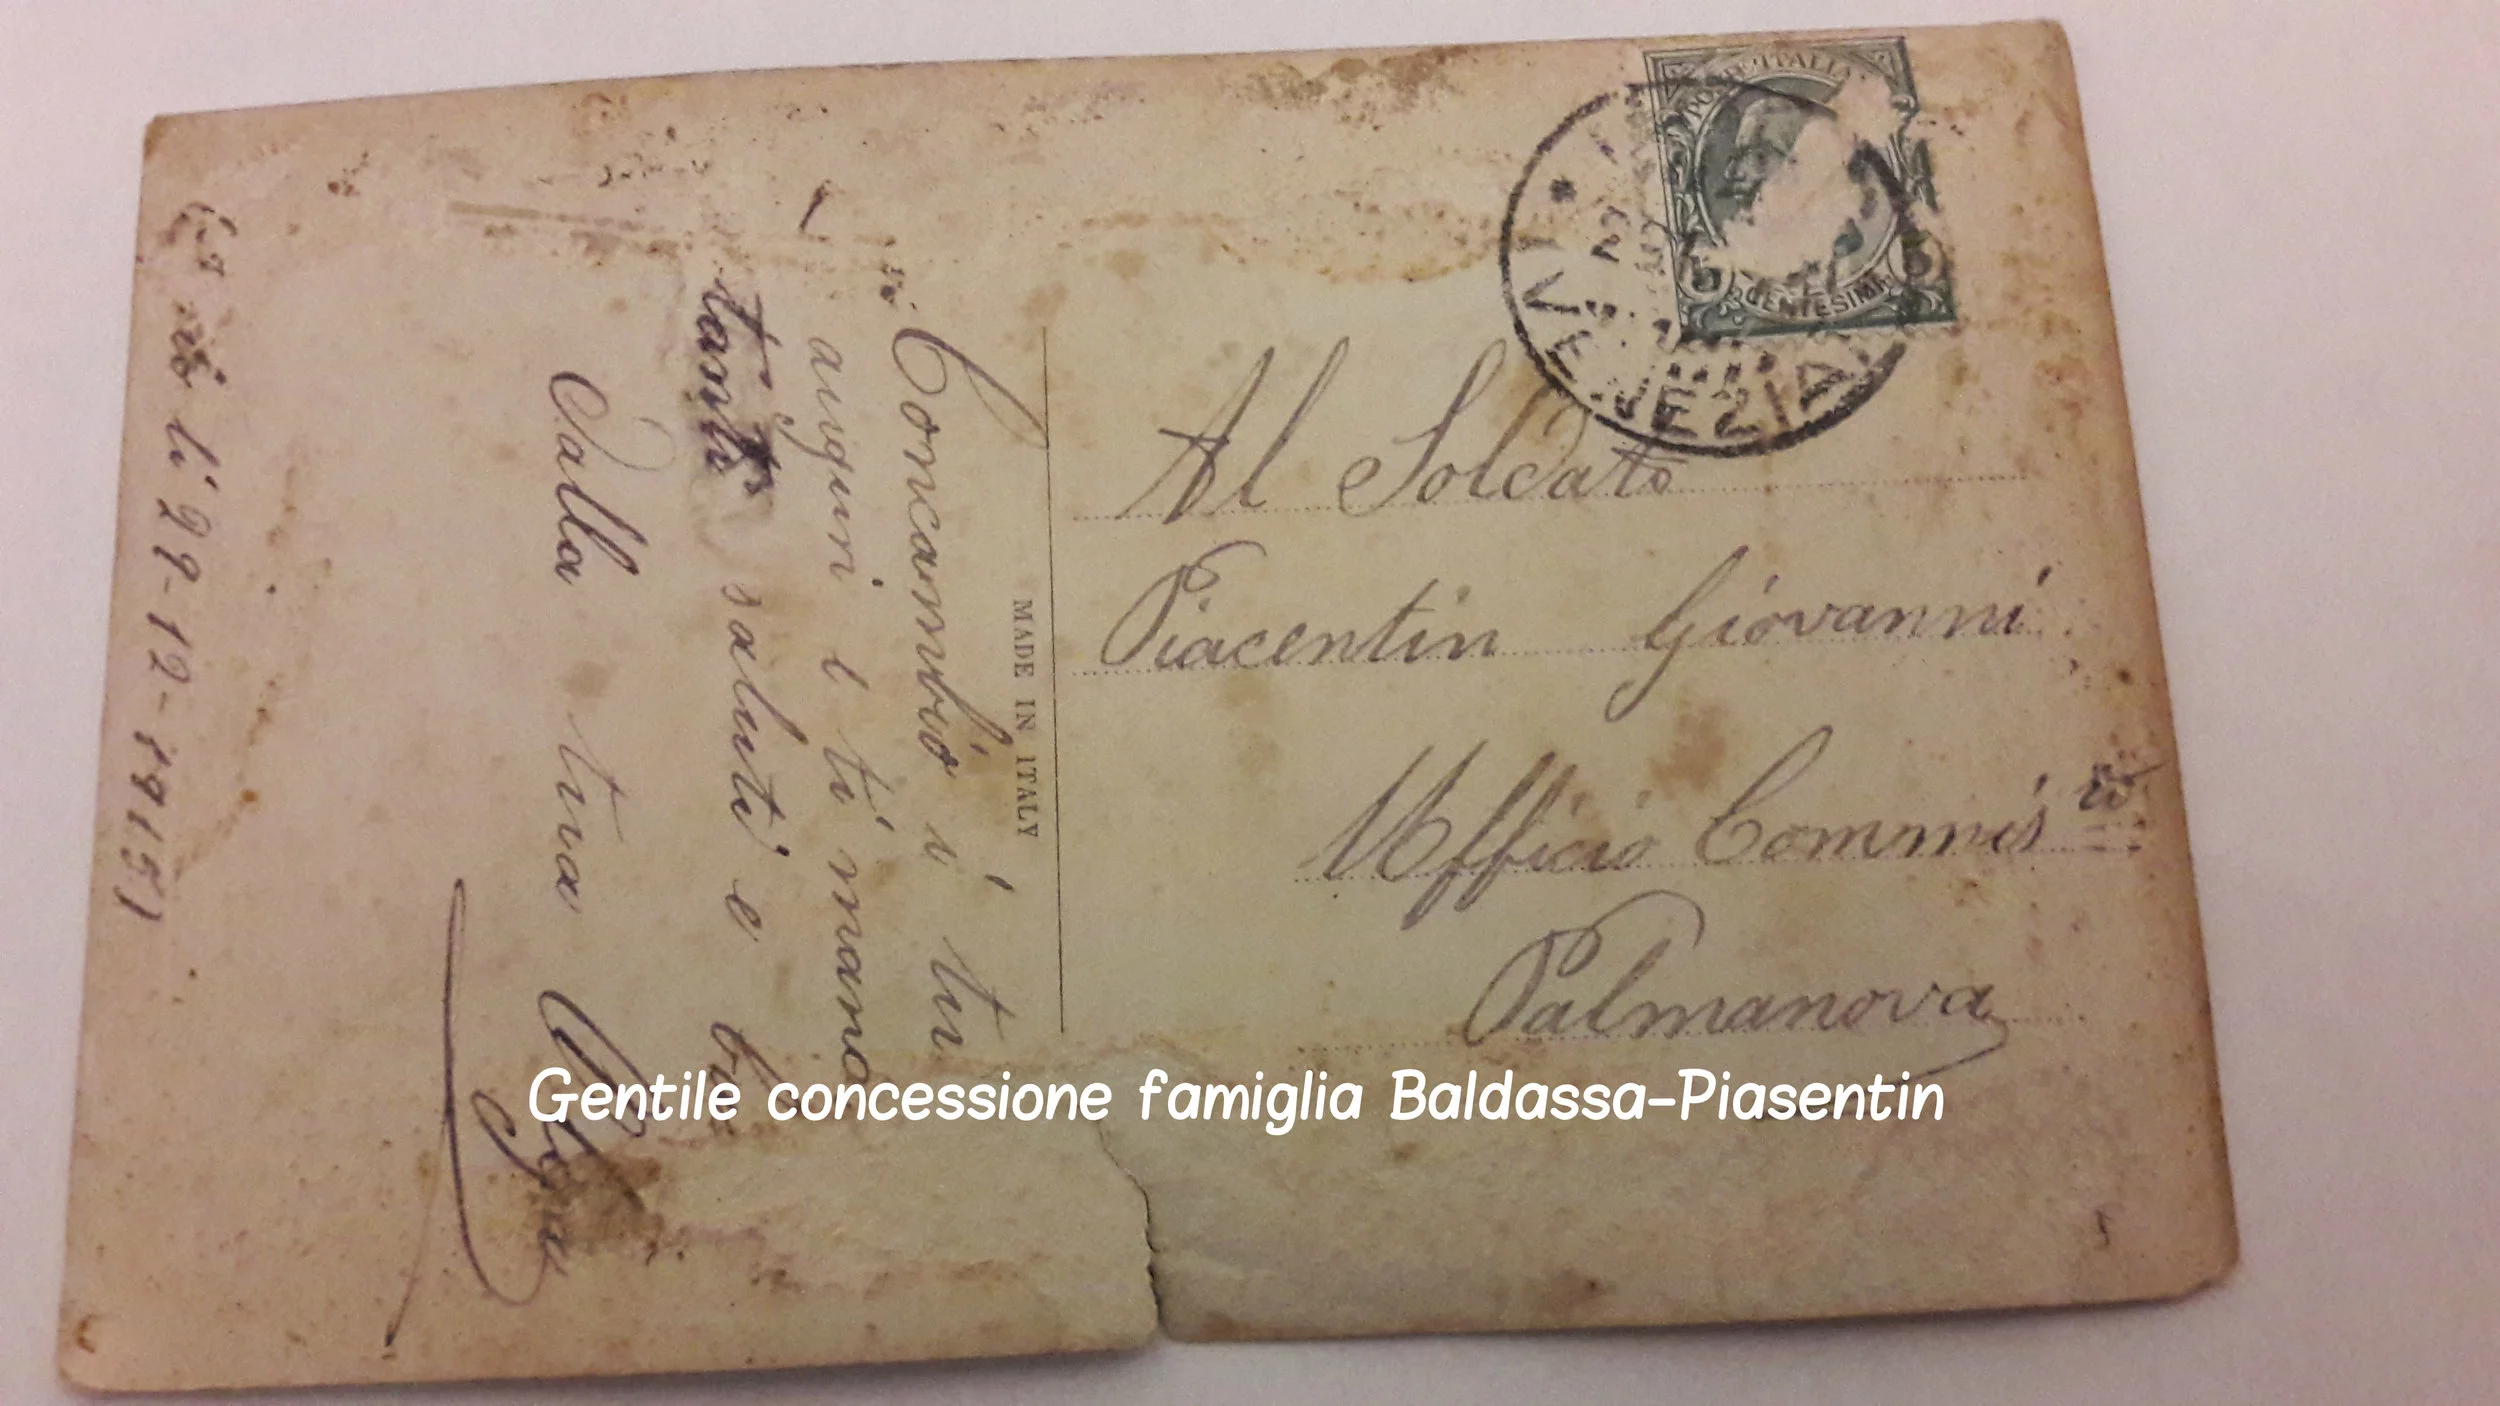 POSTE ITALIANE
5 5
CENTESIMI
VENEZIA
Al Soldato
Piacentin Giovanni
Ufficio Commis
Palmanova
MADE IN ITALY
li 29-12-1915
Concambio i tu
auguri e ti mano
tanti saluti e
Dalla tua
Gentile concessione famiglia Baldassa-Piasentin